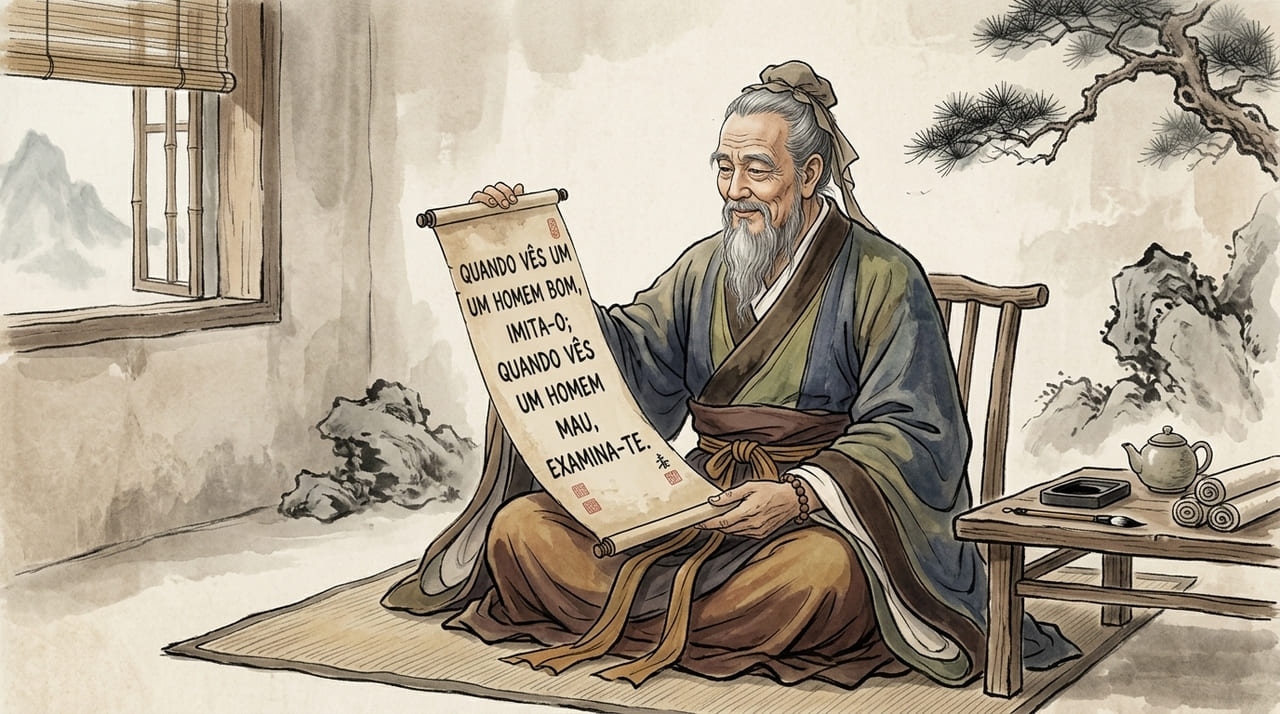 QUANDO VÊS UM
UM HOMEM BOM,
IMITA-O;
QUANDO VÊS
UM HOMEM
MAU,
EXAMINA-TE.